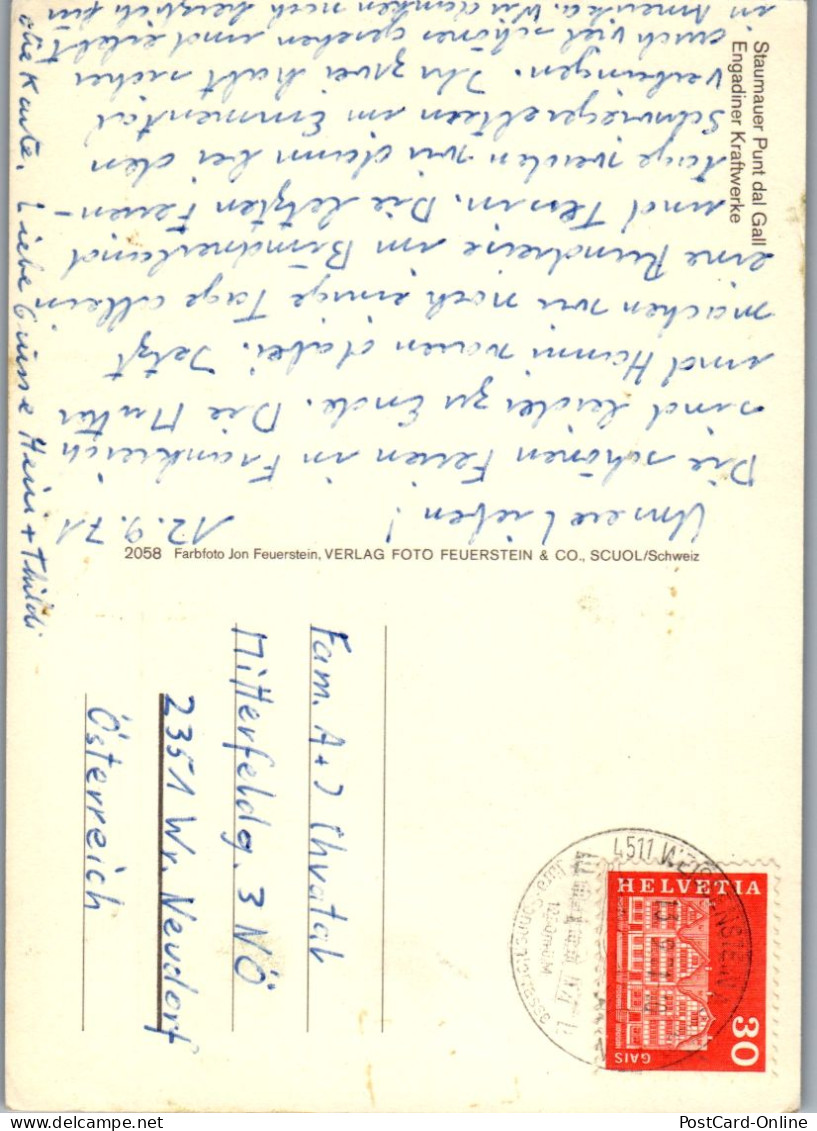 Staumauer Punt dal Gall
Engadiner Kraftwerke
12.9.71
Unsere Lieben!
Die schönen Ferien in Frankreich
sind leider zu Ende. Die Mutter
und Hanni waren dabei. Jetzt
machen wir noch einige Tage allein
eine Rundreise im Bündnerland
und Tessin. Die letzten Ferien-
tage werden wir dann bei den
Schwiegereltern im Emmental
verbringen. Ihr zwei habt sicher
auch viel schönes gesehen und erlebt
in Amerika. Wir danken noch herzlich für
die Karte. Liebe Grüsse Heini + Thildi
2058 Farbfoto Jon Feuerstein, VERLAG FOTO FEUERSTEIN & CO., SCUOL/Schweiz
Fam. A+J Chvatal
Mitterfeldg. 3 NÖ
2351 Wr. Neudorf
Österreich
4511 WEISSENSTEIN
HELVETIA
30
GAIS
PostCard-Online